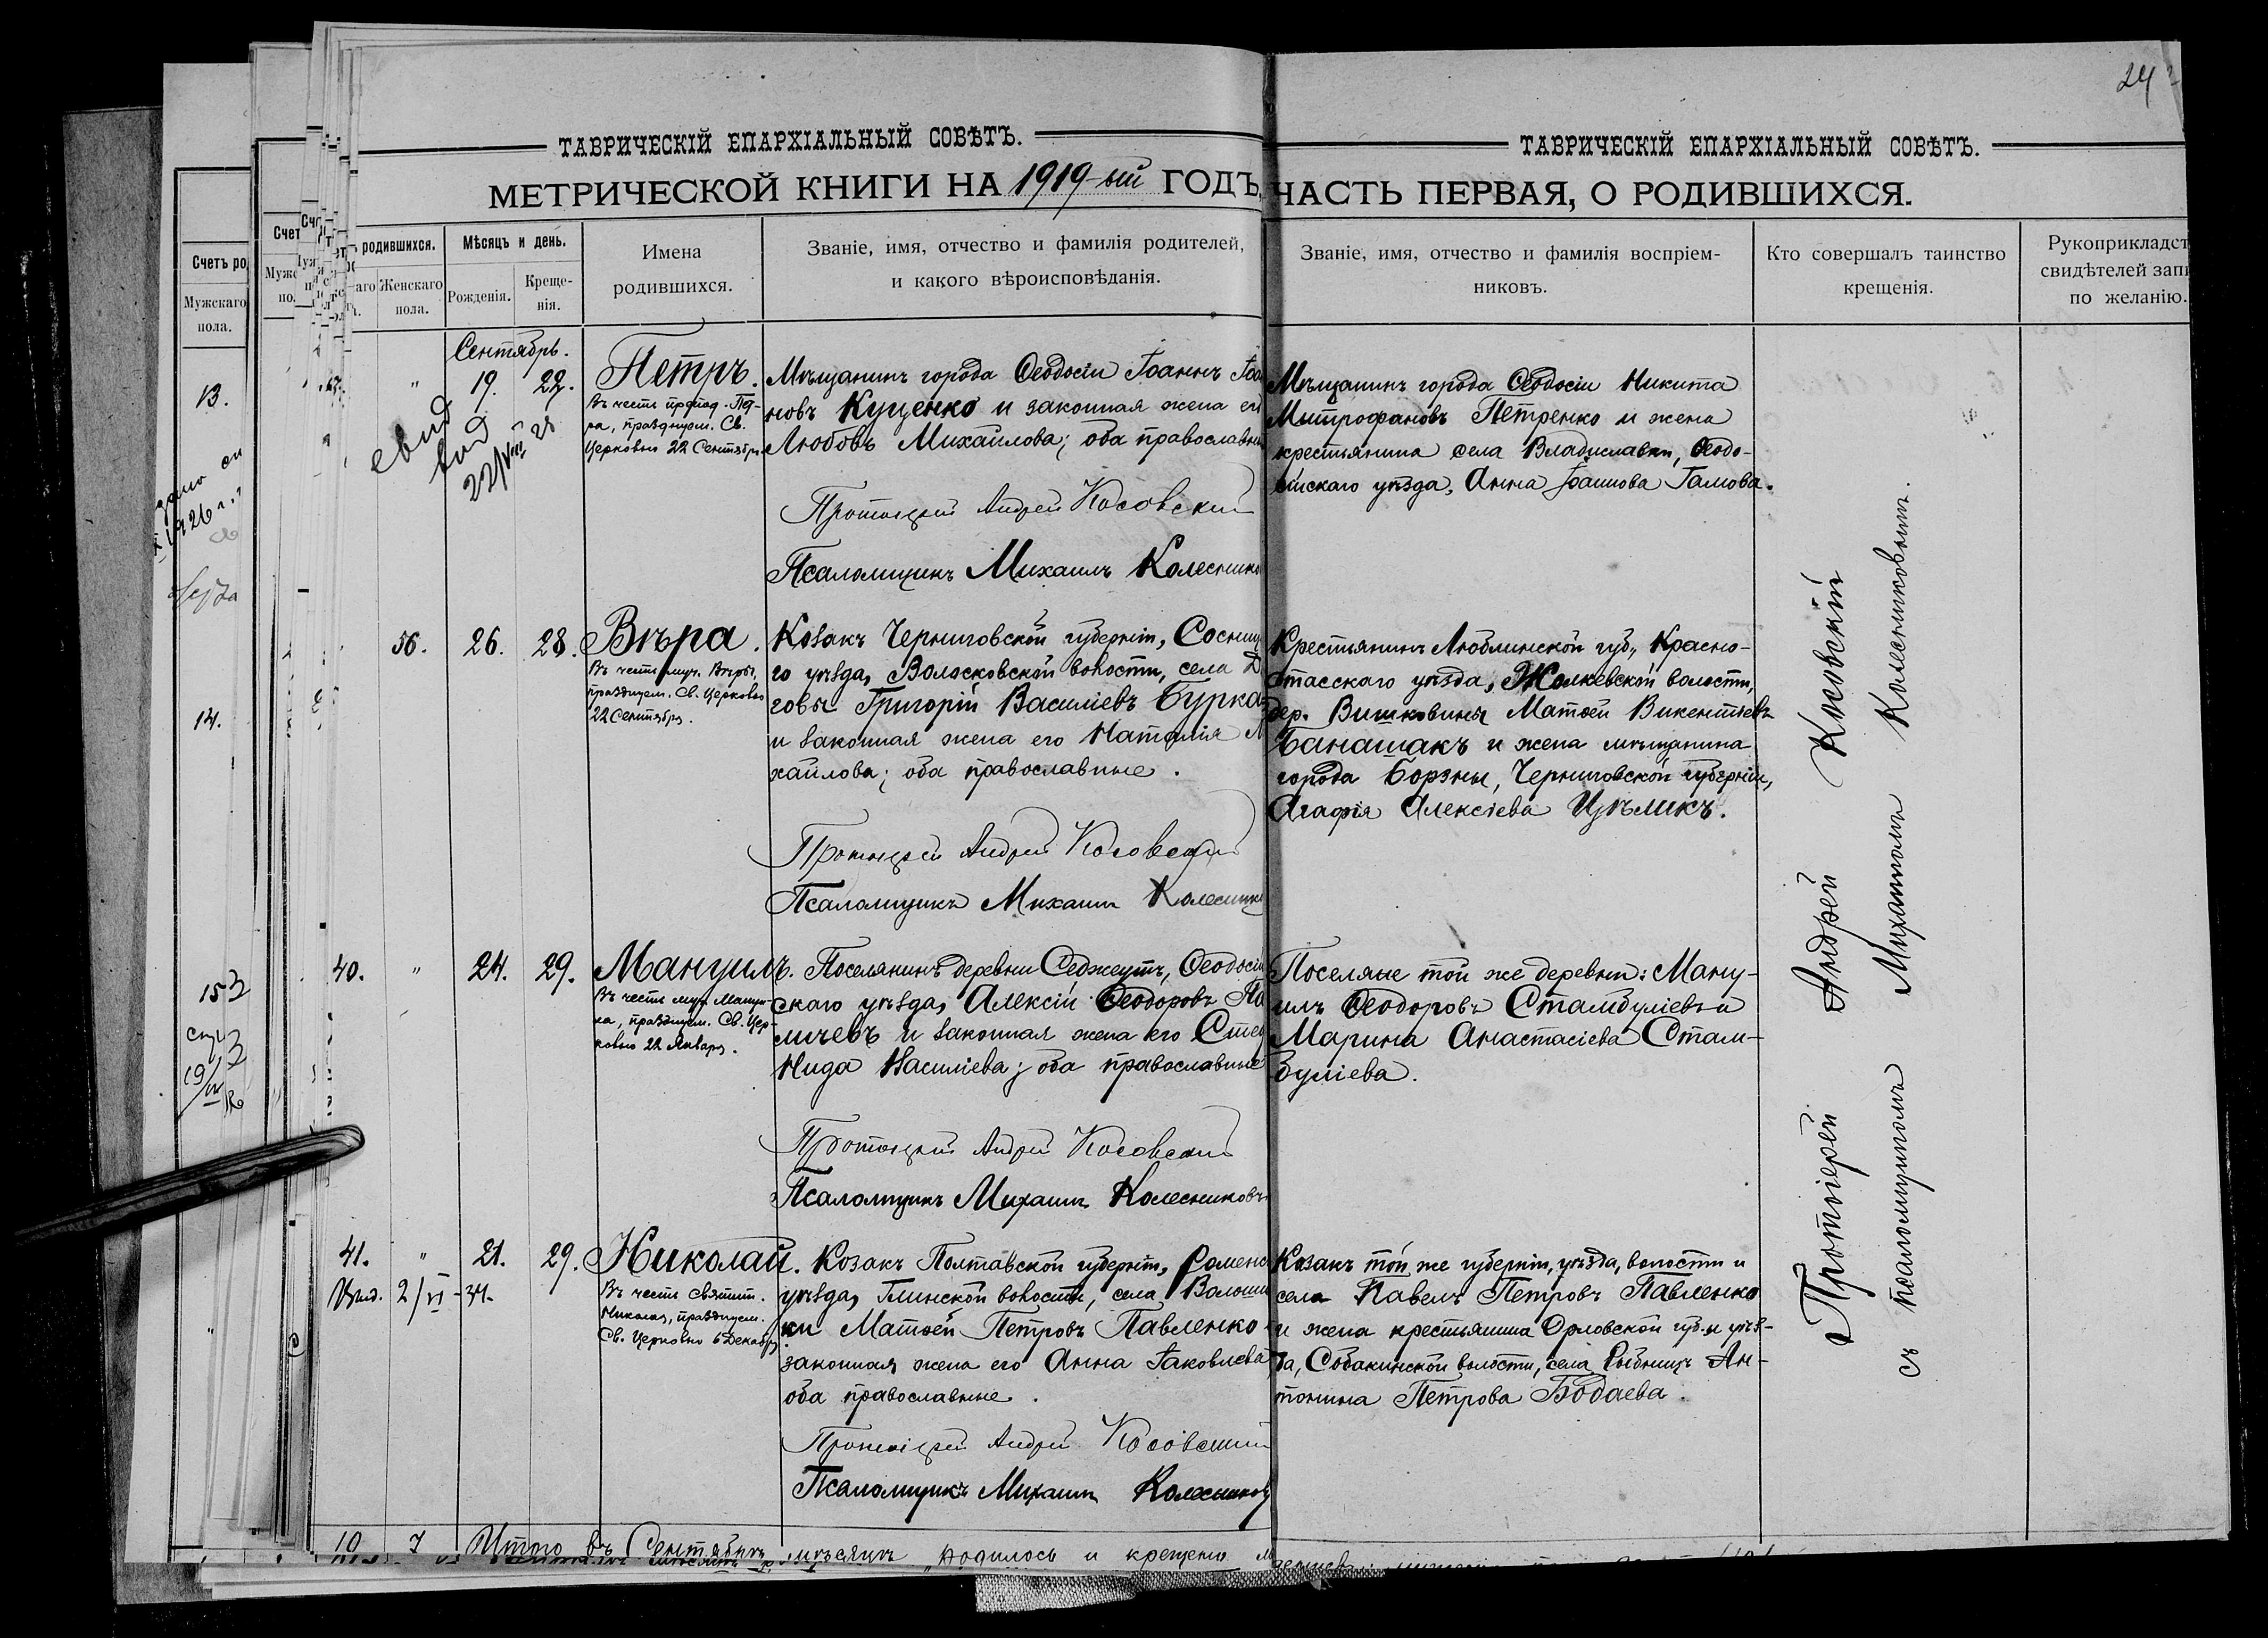 24
ТАВРИЧЕСКІЙ ЕПАРХІАЛЬНЫЙ СОВѢТЪ.
ТАВРИЧЕСКІЙ ЕПАРХІАЛЬНЫЙ СОВѢТЪ.
МЕТРИЧЕСКОЙ КНИГИ НА 1919-ый ГОДЪ,
ЧАСТЬ ПЕРВАЯ, О РОДИВШИХСЯ.
Счетъ ро
Мужскаго
пола.
родившихся.
Женскаго
пола.
Мѣсяцъ и день.
Рожденія.
Креще-
нія.
Имена
родившихся.
Званіе, имя, отчество и фамилія родителей,
и какого вѣроисповѣданія.
Званіе, имя, отчество и фамилія воспріем-
никовъ.
Кто совершалъ таинство
крещенія.
Рукоприкладст
свидѣтелей запи
по желанію.
13.
14.
1926 г.
Сентябрь.
" 19. 22.
Петръ.
Въ честь препод. Пет-
ра, празднуем. Св.
Церковью 22 Сентября.
Мѣщанинъ города Ѳеодосіи Іоаннъ Іоан
новъ Куценко и законная жена его
Любовь Михайлова; оба православные
Протоіерей Андрей Косовскій
Псаломщикъ Михаилъ Колеснико
Мѣщанинъ города Ѳеодосіи Никита
Митрофановъ Петренко и жена
крестьянина села Владиславки, Ѳеодо-
сійскаго уѣзда, Анна Іоаннова Гамова.
56. 26. 28.
Вѣра.
Въ честь муч. Вѣры,
празднуем. Св. Церковью
22 Сентября.
Козакъ Черниговской губерніи, Сосниц
го уѣзда, Волосковской волости, села
Григорій Василіевъ Бурка
и законная жена его Наталія М
хайлова; оба православные.
Протоіерей Андрей Косовскій
Псаломщикъ Михаилъ Колеснико
Крестьянинъ Люблинской губ., Красно-
ставскаго уѣзда, Жолкевской волости,
дер. Вишковины Матѳей Викентіевъ
Банашакъ и жена мѣщанина
города Борзны, Черниговской губерніи,
Агафія Алексіева Цѣликъ.
40. " 24. 29.
Мануилъ.
Въ честь муч. Мануи-
ла, празднуем. Св. Цер-
ковью 22 Января.
Поселянинъ деревни Седжеутъ, Ѳеодосій
скаго уѣзда, Алексій Ѳеодоровъ
и законная жена его
Нида Василіева; оба православные
Протоіерей Андрей Косовскій
Псаломщикъ Михаилъ Колесниковъ
Поселяне той же деревни: Ману-
илъ Ѳеодоровъ Стамбуліевъ и
Марина Анастасіева Стам-
буліева.
41. " 21. 29.
Выд. 2/VI-34.
Николай.
Въ честь Святит.
Николая, празднуем.
Св. Церковью 6 Декабря
Козакъ Полтавской губерніи, Роменс
уѣзда, Глинской волости, села Волошин
ки Матѳей Петровъ Павленко
законная жена его Анна Іаковлева
оба православные.
Протоіерей Андрей Косовскій
Псаломщикъ Михаилъ Колесниковъ
Козакъ той же губерніи, уѣзда, волости и
села Павелъ Петровъ Павленко
и жена крестьянина Орловской губ. и уѣз-
да, Собакинской волости, села Рыбницъ Ан-
тонина Петрова Бодаева.
Протоіерей Андрей Косовскій
съ псаломщикомъ Михаиломъ Колесниковымъ.
10 7 Итого въ Сентябрѣ мѣсяцѣ родилось и крещено